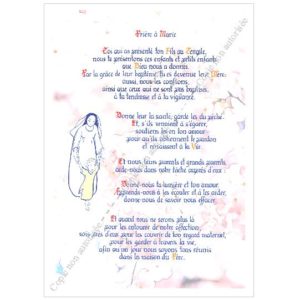 Prière à Marie
Toi qui as présenté ton Fils au Temple,
nous te présentons ces enfants et petits enfants
que Dieu nous a donnés.
Par la grâce de leur baptême, tu es devenue leur Mère:
aussi, nous les confions,
ainsi que ceux qui ne sont pas baptisés,
à ta tendresse et à ta vigilance.
Donne leur la santé, garde les du péché.
Et, s'ils venaient à s'égarer,
soutiens les en ton amour
pour qu'ils obtiennent le pardon
et renaissent à la Vie.
Et nous, leurs parents et grands parents,
aide-nous dans notre tâche auprès d'eux.
Donne-nous ta lumière et ton amour.
Apprends-nous à les écouter et à les aider,
donne nous de savoir nous effacer.
Et quand nous ne serons plus là
pour les entourer de notre affection,
sois près d'eux pour les couvrir de ton regard maternel,
pour les garder à travers la vie,
afin qu'un jour nous soyons tous réunis
dans la maison du Père.
Copie non autorisée
Copie non autorisée